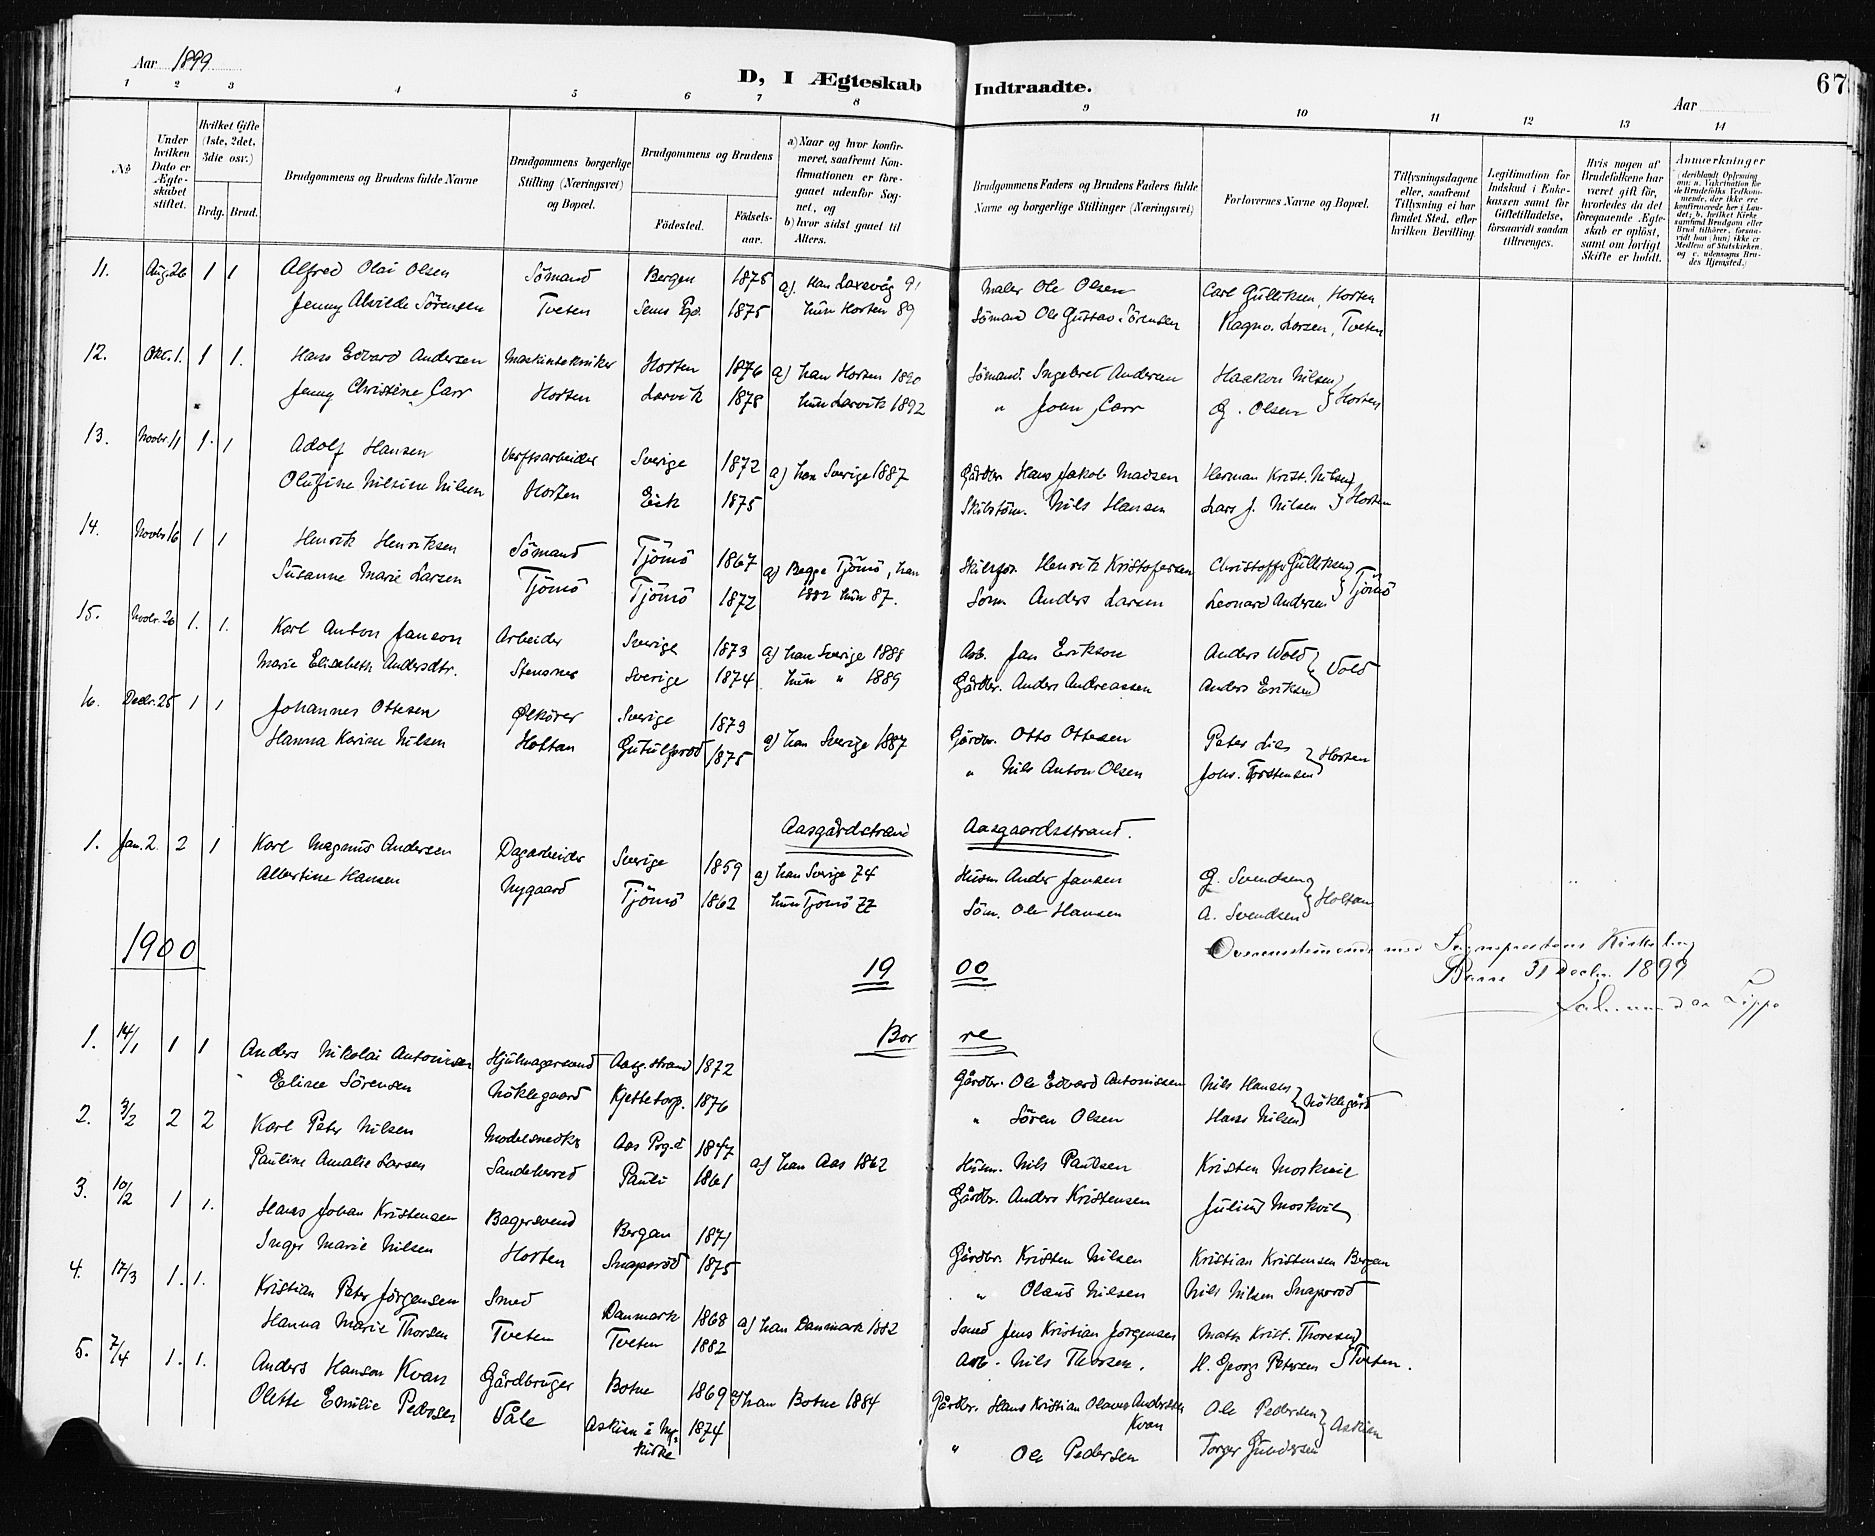 Aar 1899
D, I Ægteskab Indtraadte.
67
Aar
1 2 3 4 5 6 7 8 9 10 11 12 13 14
No
Under hvilken Dato er Ægteskabet stiftet.
Hvilket Gifte (1ste, 2det, 3die osv.)
Brdg. Brud.
Brudgommens og Brudens fulde Navne
Brudgommens borgerlige Stilling (Næringsvei) og Bopæl.
Brudgommens og Brudens
Fødested.
Fødselsaar.
a) Naar og hvor konfirmeret, saafremt Konfirmationen er foregaaet udenfor Sognet, og
b) hvor sidst gaaet til Alters.
Brudgommens Faders og Brudens Faders fulde Navne og borgerlige Stillinger (Næringsvei)
Forlovernes Navne og Bopæl.
Tillysningsdagene eller, saafremt Tillysning ei har fundet Sted, efter hvilken Bevilling
Legitimation for Indskud i Enkekassen samt for Giftetilladelse, forsaavidt saadan tiltrænges.
Hvis nogen af Brudefolkene har været gift før, hvorledes da det foregaaende Ægteskab er opløst, samt om lovligt Skifte er holdt.
Anmærkninger
11. Aug. 26 1 1 Alfred Olai Olsen Sömand Bergen 1875 a). Han Laxevåg 91 Maler Ole Olsen Carl Gulliksen, Horten
Jenny Alvilde Sörensen Tveten Sems Pgd. 1875 hun Horten 89 Sömand Ole Gustav Sörensen Ragnv. Larsen, Tveten
12. Okt. 1. 1 1. Hans Edvard Andersen Maskintekniker Horten 1876 a) han Horten 1890 Sömand. Ingebret Andersen Haakon Nilsen
Jenny Christine Carr Horten Larvik 1878 hun Larvik 1892 " John Carr G. Olsen } Horten
13. Novbr. 11 1. 1 Adolf Hansen Verftsarbeider Sverige 1872 a) han Sverige 1887 Gårdbr. Hans Jakob Madsen Herman Krist. Nilsen
Olufine Nilsine Nilsen Horten Eik 1875 Skibstöm. Nils Hansen Lars J. Nilsen } Horten
14. Novbr 16 1 1 Henrik Henriksen Sömand Tjömö 1867 a) Begge Tjömö, han Henrik Kristofersen Christoffer Gulliksen
Susanne Marie Larsen Tjömö Tjömö 1872 1882 hun 87. Söm. Anders Larsen Leonard Andersen } Tjömö
15. Novbr. 26 1. 1. Karl Anton Janson Arbeider Sverige 1873 a) han Sverige 1888 Arb. Jan Erikson Anders Vold
Marie Elisabeth Andersdtr. Stensnes Sverige 1874 hun " 1889 Gårdbr. Anders Andreassen Anders Eriksen } Vold
16. Decbr. 25 1 1 Johannes Ottesen Ølkörer Sverige 1873 a) han Sverige 1887 Gårdbr. Otto Ottesen Peter Lies
Hanna Karine Nilsen Holtan Gutulfsrod 1875 " Nils Anton Olsen Johs. Torstensen } Horten
Aasgårdstrand Aasgaardsstrand.
1. Jan. 2. 2 1 Karl Magnus Andersen Dagarbeider Sverige 1859 a) han Sverige 74 Husm. Ander Jansen G. Svendsen
Albertine Hansen Nygaard Tjömö 1862 hun Tjömö 77 Söm. Ole Hansen A. Svendsen } Holtan
Overensstemmende med Sognepræstens Kirkebog
Borre 31 Decbr. 1899
1900 19 00
Bor re
1. 14/1 1 1 Anders Nikolai Antonisen Hjulmagersvend Aasg.strand 1872 Gårdbr. Ole Edvard Antonissen Nils Hansen
Eline Sörensen Nöklegaard Kjettetorp. 1876 " Sören Olsen Hans Nilsen } Nöklegård
2. 3/2 2 2 Karl Peter Nilsen Modelsnedkr Aas Pgd. 1847 a) han Aas 1862 Husm. Nils Paulsen Kristen Moskvil
Pauline Amalie Larsen Sandeherred Pauli 1861 Gårdbr. Anders Kristensen Julius Moskvil
3. 10/2 1 1. Hans Johan Kristensen Bagersvend Bergan 1871 Gårdbr. Kristen Nilsen Kristian Kristensen Bergan
Inger Marie Nilsen Horten Snaparöd 1875 " Olaus Nilsen Nils Nilsen Snaparöd
4. 17/3 1. 1. Kristian Peter Jörgensen Smed Danmark 1868 a) han Danmark 1882 Smed Jens Kristian Jörgensen Mats Krist. Thoresen
Hanna Marie Thorsen Tveten Tveten 1882 Arb. Nils Thorsen. H. Georg Petersen } Tveten.
5. 7/4 1. 1. Anders Hanson Kvan Gårdbruger Botne 1869 a) han Botne 1884 Gårdbr. Hans Kristian Olaves Andersen Kvan Ole Pedersen
Olette Emilie Pedersen Våle Askim i Nykirke 1874 " Ole Pedersen Torger Gundersen } Askim